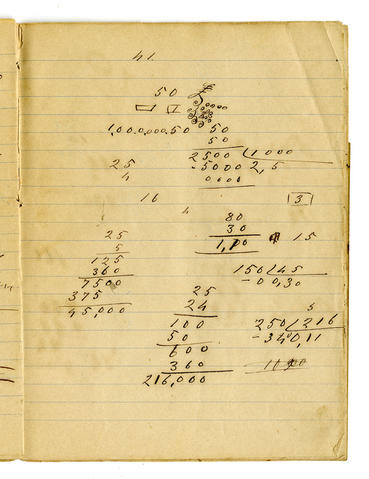 41.
50
1,000,000.50 50
50
2500 1000
25 -5000 2,5
4 0000
10 3
4 80
25 30
5 15
125 150 45
360 -00,30
7500 25
375 24 5
45,000 100 250 216
50 -340,11
600
360
216,000